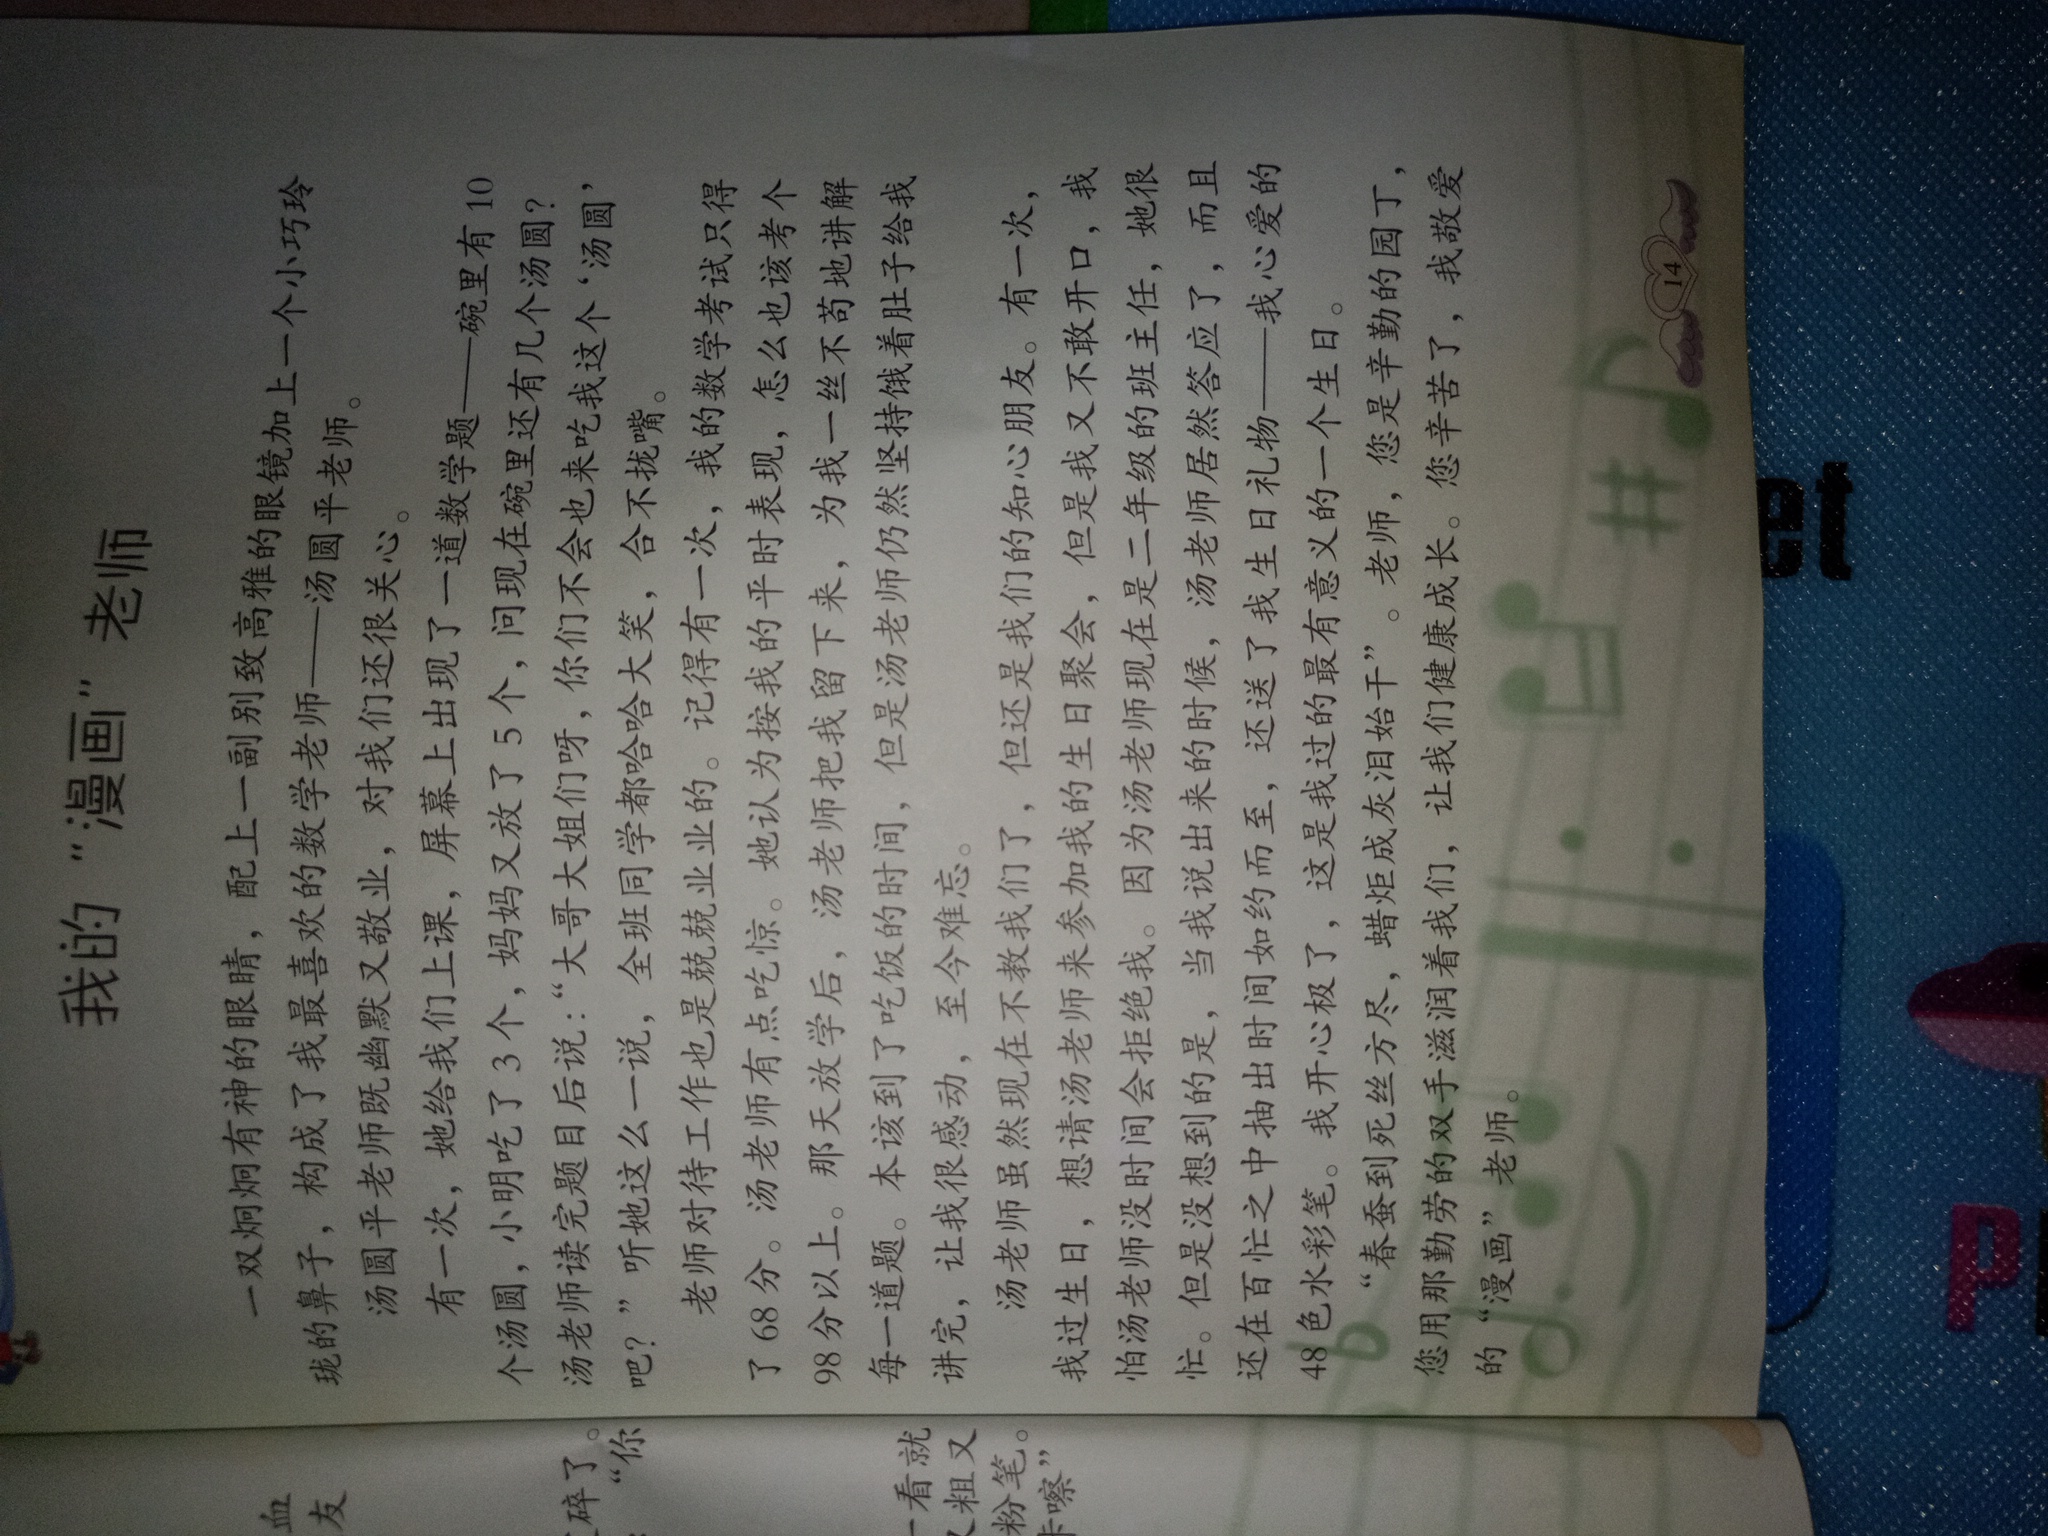 我的“漫画”老师
一双炯炯有神的眼睛，配上一副别致高雅的眼镜加上一个小巧玲
珑的鼻子，构成了我最喜欢的数学老师——汤圆平老师。
汤圆平老师既幽默又敬业，对我们还很关心。
有一次，她给我们上课，屏幕上出现了一道数学题——碗里有 10
个汤圆，小明吃了 3 个，妈妈又放了 5 个，问现在碗里还有几个汤圆？
汤老师读完题目后说：“大哥大姐们呀，你们不会也来吃我这个‘汤圆’
吧？”听她这么一说，全班同学都哈哈大笑，合不拢嘴。
老师对待工作也是兢兢业业的。记得有一次，我的数学考试只得
了 68 分。汤老师有点吃惊。她认为按我的平时表现，怎么也该考个
98 分以上。那天放学后，汤老师把我留下来，为我一丝不苟地讲解
每一道题。本该到了吃饭的时间，但是汤老师仍然坚持饿着肚子给我
讲完，让我很感动，至今难忘。
汤老师虽然现在不教我们了，但还是我们的知心朋友。有一次，
我过生日，想请汤老师来参加我的生日聚会，但是我又不敢开口，我
怕汤老师没时间会拒绝我。因为汤老师现在是二年级的班主任，她很
忙。但是没想到的是，当我说出来的时候，汤老师居然答应了，而且
还在百忙之中抽出时间如约而至，还送了我生日礼物——我心爱的
48 色水彩笔。我开心极了，这是我过的最有意义的一个生日。
“春蚕到死丝方尽，蜡炬成灰泪始干”。老师，您是辛勤的园丁，
您用那勤劳的双手滋润着我们，让我们健康成长。您辛苦了，我敬爱
的“漫画”老师。
14
血
友
碎了。
“你
一看就
又粗又
粉笔。
卡嚓”
et
P